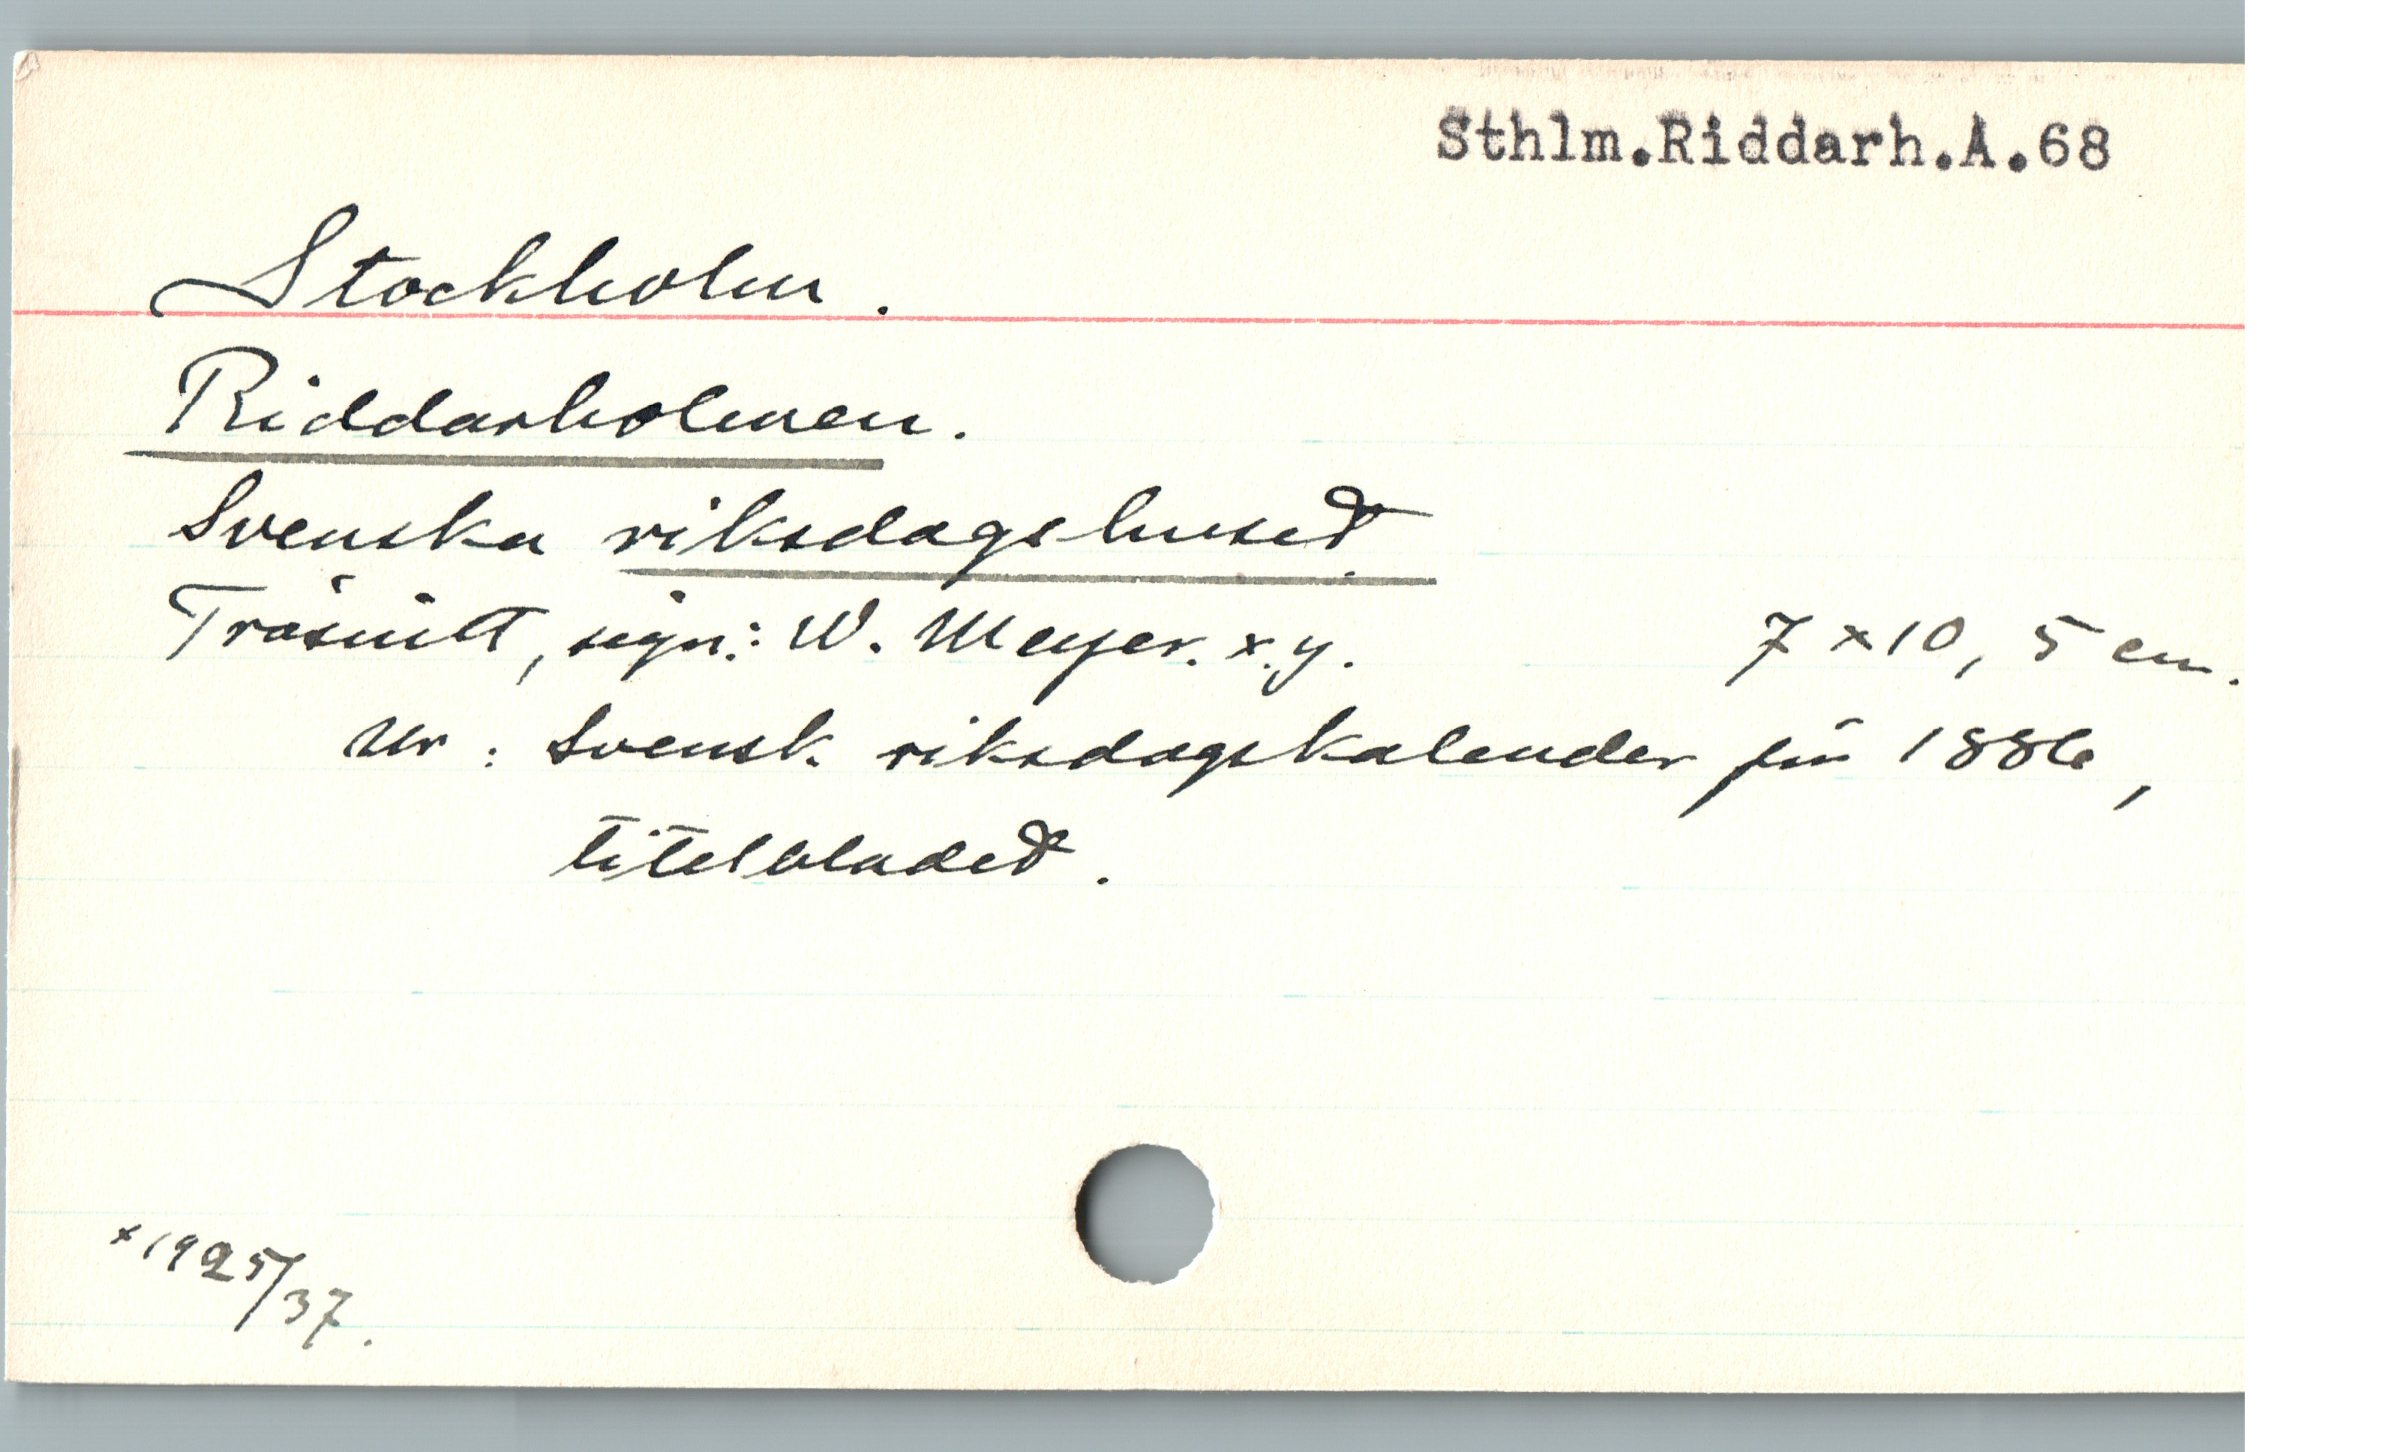 Sthlm.Riddarh.A.68
Stockholm.
Riddarholmen.
Svenska riksdagshuset.
Träsnitt, sign.: W. Meyer. x.y. 7 x 10,5 cm.
Ur: Svensk riksdagskalender för 1886,
titelbladet.
x 1925/37.